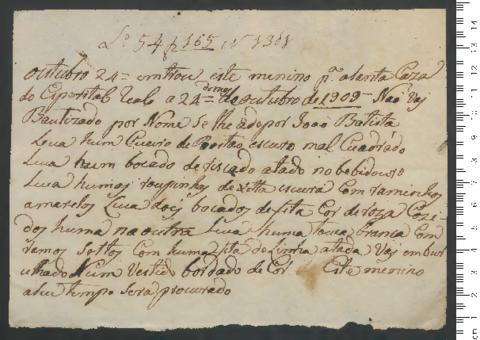 Lº 54 f 165 Nº 1308
outubro 24 = entrou este menino pª a Santa Caza
do Esporital Real a 24 = de outubro de 1909 = Não Vaj
Bautizado por Nome se lhe a de por João Batista
Leva hum Cueiro de escuro mal Cuadrado
Leva hum bocado de riscado atado no
Leva humaj roupinhaj de xitta escura Com raminhos
amarelos Leva dois bocados de fita Cor de roza Cozi
dos huma na outra Leva huma touca branca Com
ramos Com huma fita de Linha atada Vaj em bur
ulhado Num Vestido bordado de Cor Este menino
a seu tempo sera procurado